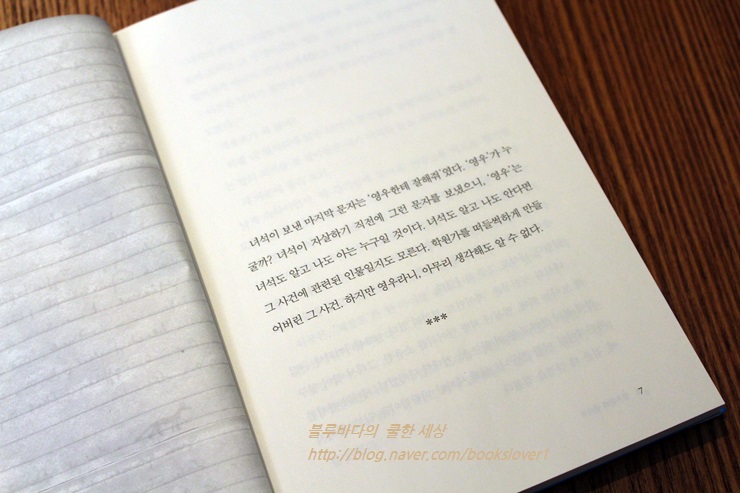 녀석이 보낸 마지막 문자는 '영우한테 잘해줘'였다. '영우'가 누
굴까? 녀석이 자살하기 직전에 그런 문자를 보냈으니, '영우'는
녀석도 알고 나도 아는 누구일 것이다. 녀석도 알고 나도 안다면
그 사건에 관련된 인물일지도 모른다. 학원가를 떠들썩하게 만들
어버린 그 사건. 하지만 영우라니, 아무리 생각해도 알 수 없다.
***
7
블루바다의 쿨한 세상
http://blog.naver.com/bookslover1